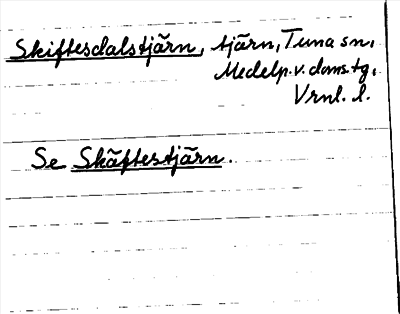 Skiftesdalstjärn, tjärn, Tuna sn,
Medelp. v. doms.tg,
Vrnl. l.
Se Skäftestjärn.